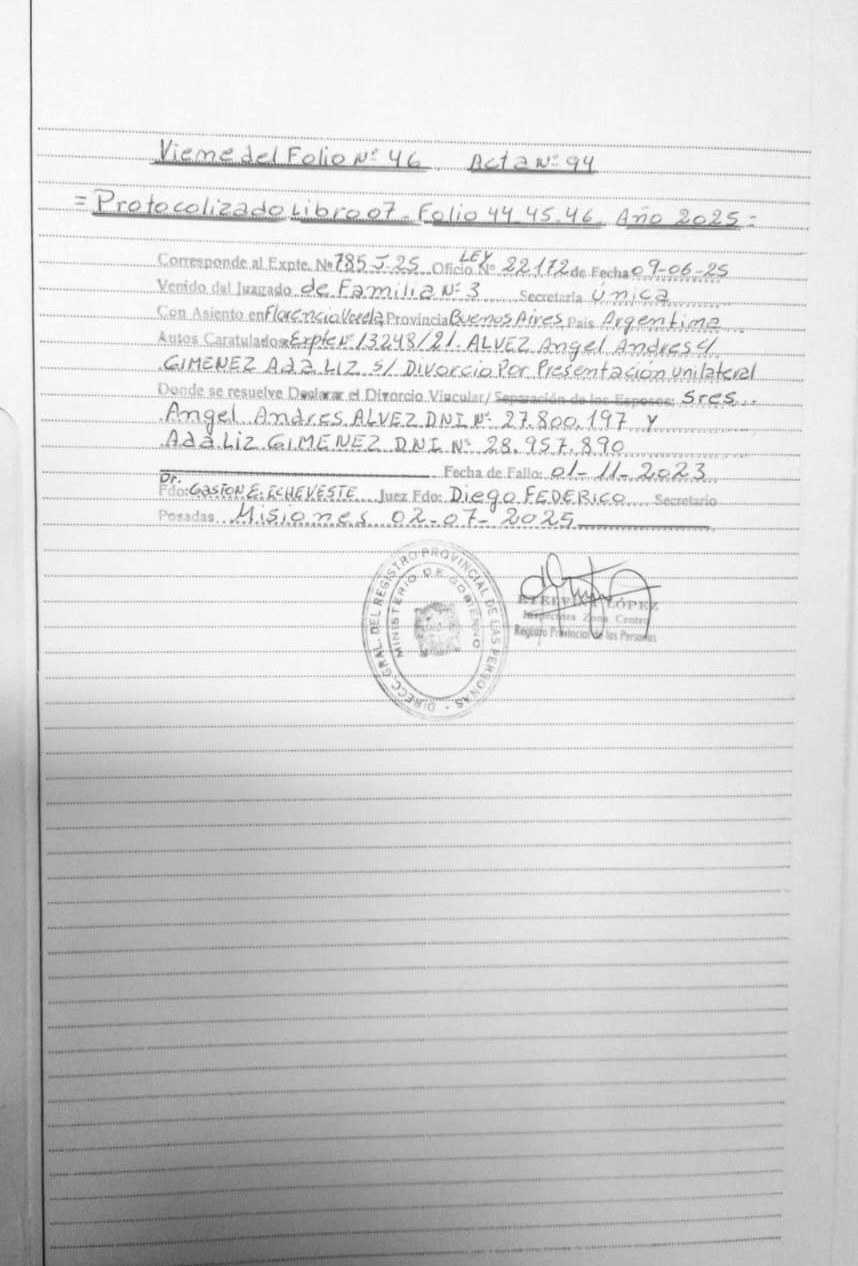 Viene del Folio Nº 46 Acta Nº 94
= Protocolizado Libro 07 - Folio 44.45.46 Año 2025 =
Corresponde al Expte. Nº 785 J-25 Oficio LEY Nº 22.172 de Fecha 09-06-25
Venido del Juzgado de Familia Nº 3 Secretaría Única
Con Asiento en Florencio Varela Provincia Buenos Aires País Argentina
Autos Caratulados: Expte Nº 13248/21. ALVEZ Angel Andres c/
GIMENEZ Ada LIZ s/ Divorcio Por Presentación unilateral
Donde se resuelve Declarar el Divorcio Vincular/ Separación de los Esposos: Sres..
Angel Andres ALVEZ DNI Nº 27.800.197 y
Ada Liz GIMENEZ DNI Nº 28.957.890
Fecha de Fallo: 01-11-2023
Fdo: Dr. GASTON E. ECHEVESTE Juez Fdo: Diego FEDERICO Secretario
Posadas, Misiones 02-07-2025
DIRECC. GRAL. DEL REGISTRO PROVINCIAL DE LAS PERSONAS
MINISTERIO DE GOBIERNO
ETELVINA LOPEZ
Inspectora Zona Centro
Registro Provincial de las Personas